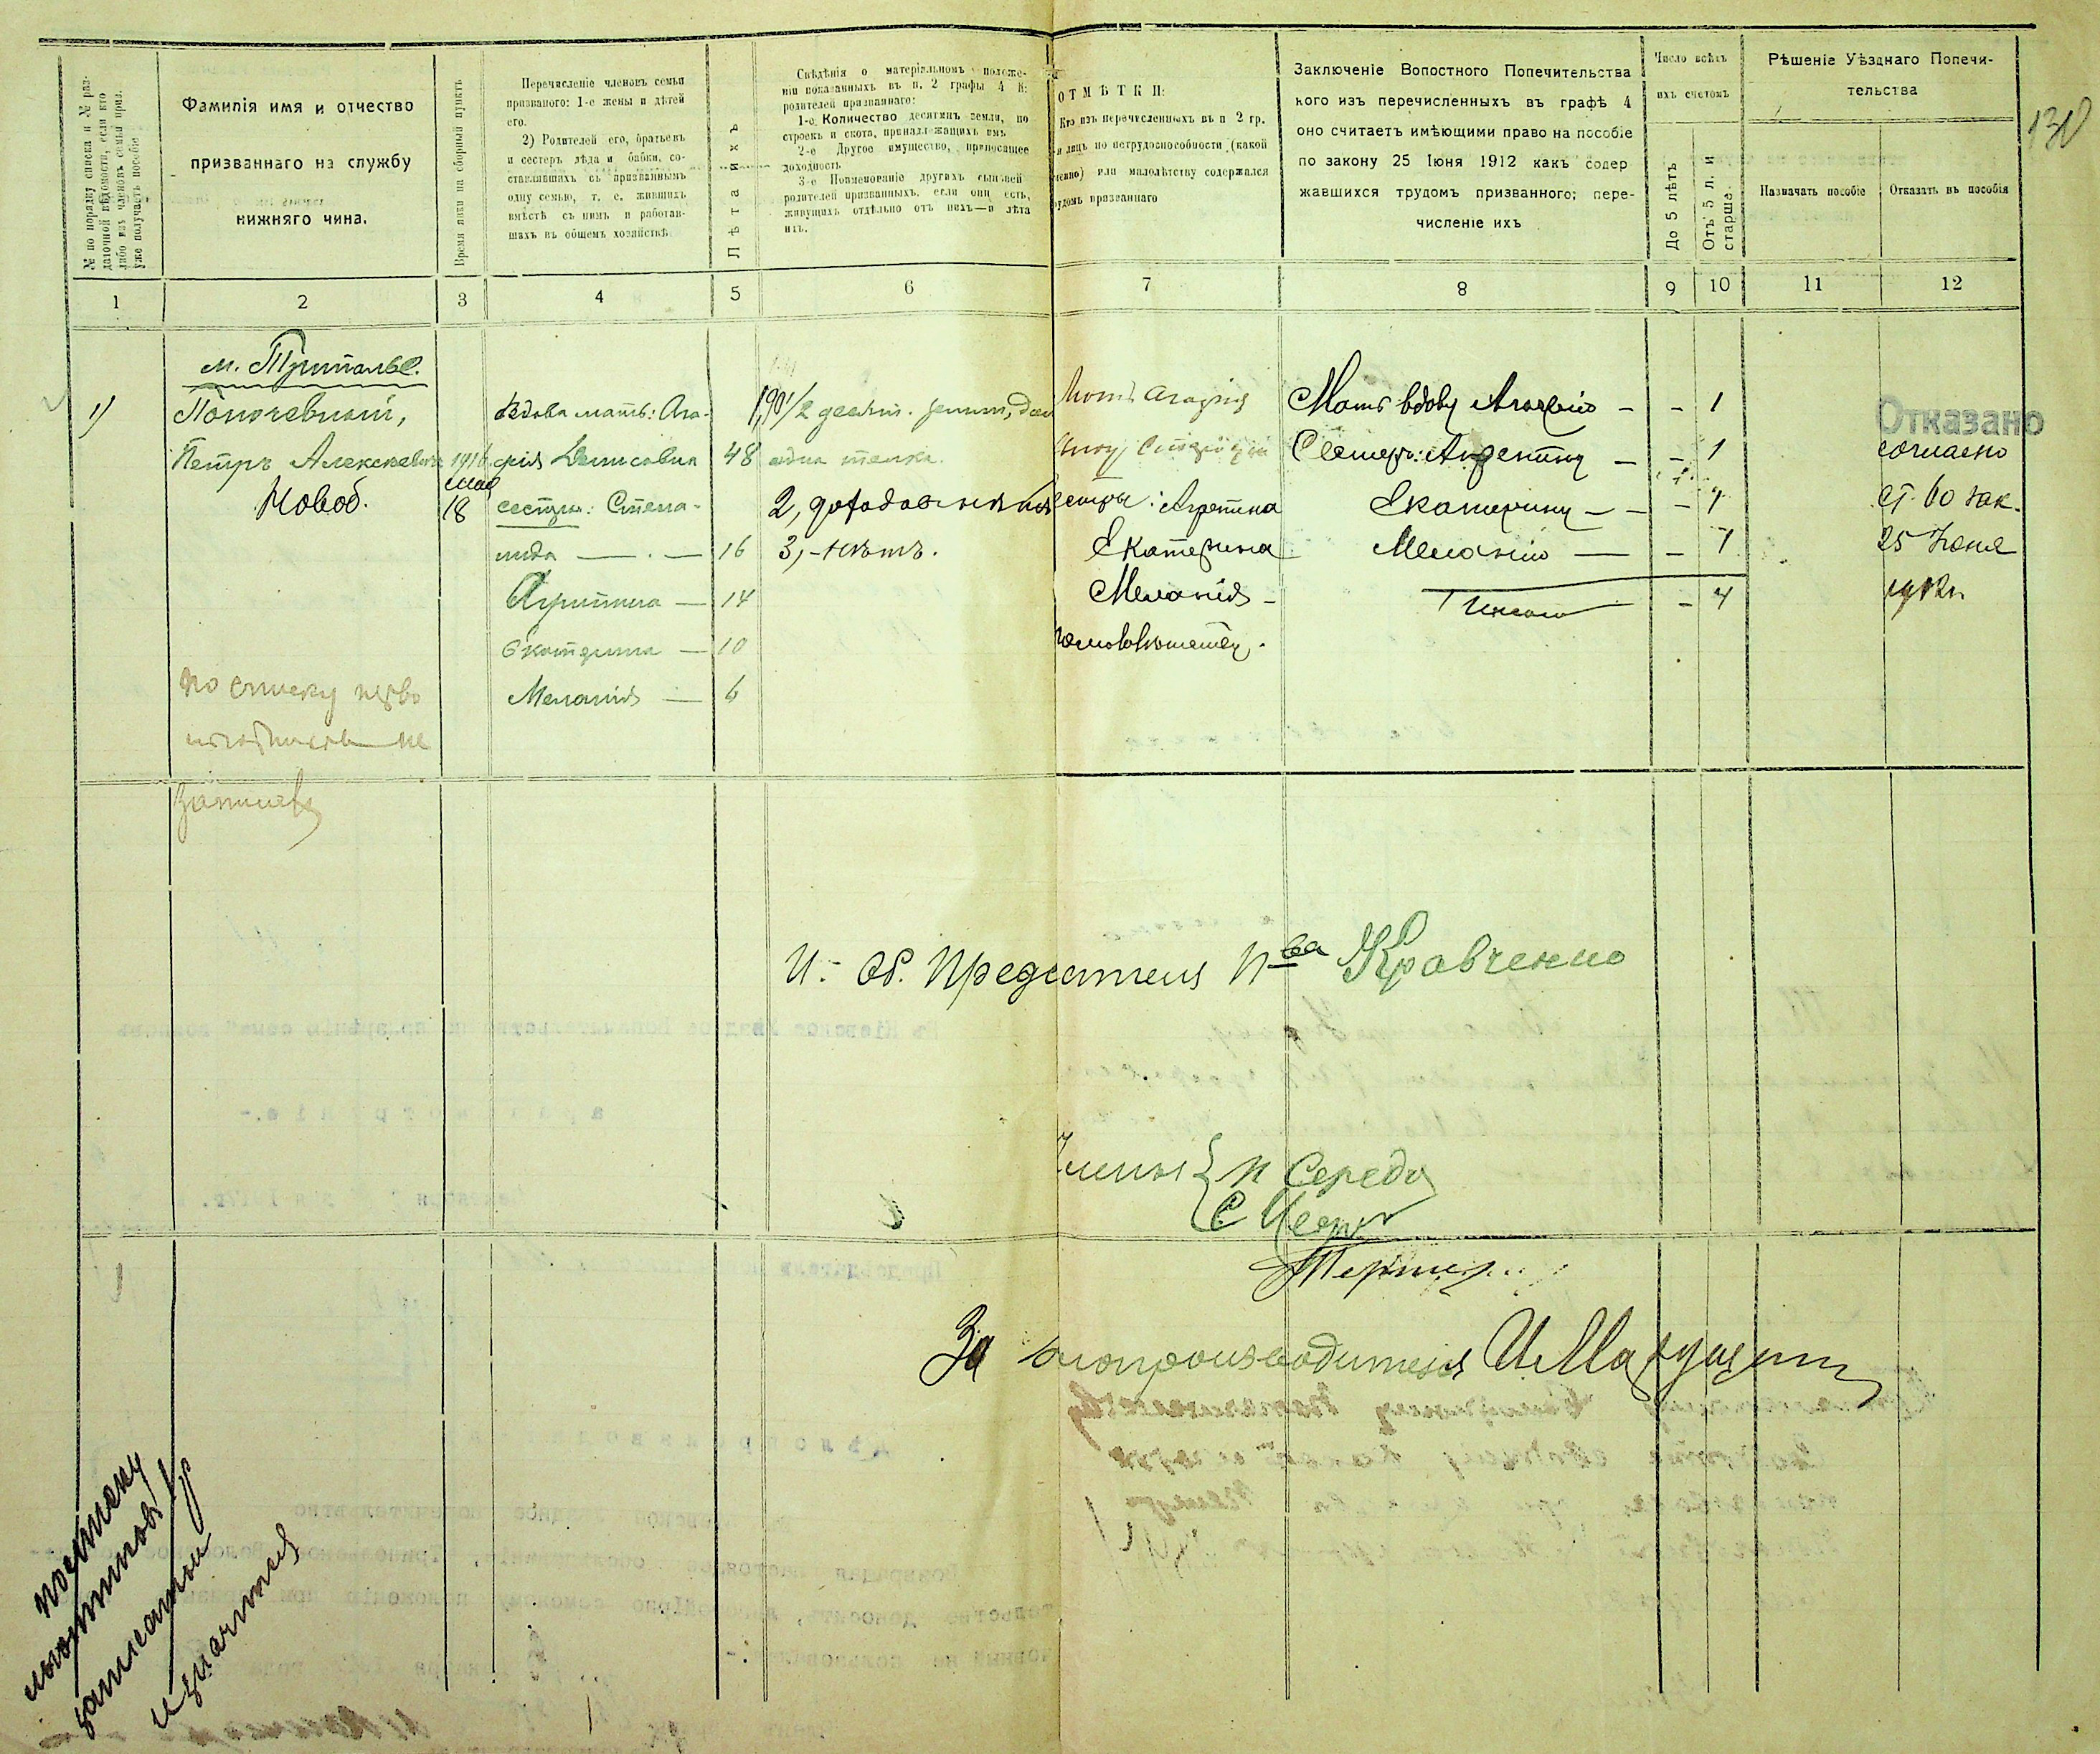 130
№ по порядку списка и № раз-
даточной вѣдомости, если кто
либо изъ членовъ семьи приз.
уже получаетъ пособіе
Фамилія имя и отчество
призваннаго на службу
нижняго чина.
Время явки на сборный пунктъ
Перечисленіе членовъ семьи
призваного: 1-е жены и дѣтей
его.
2) Родителей его, братьевъ
и сестеръ дѣда и бабки, со-
ставлявшихъ съ призваннымъ
одну семью, т. е. жившихъ
вмѣстѣ съ нимъ и работав-
шихъ въ общемъ хозяйствѣ
Лѣта ихъ
Свѣдѣнія о матеріяльномъ положе-
ніи показанныхъ въ п. 2 графы 4 й:
родителей призваннаго:
1-е. Количество десятинъ земли, по
строекъ и скота, принадлежащихъ имъ
2-е Другое имущество, приносящее
доходность
3-е Поименованіе другихъ сыновей
родителей призванныхъ, если они есть,
живущихъ отдѣльно отъ нихъ—и лѣта
ихъ.
ОТМѢТКИ:
Кто изъ перечисленныхъ въ п 2 гр.
и лицъ по нетрудоспособности (какой
менно) или малолѣтству содержался
рудомъ призваннаго
Заключеніе Вопостного Попечительства
кого изъ перечисленныхъ въ графѣ 4
оно считаетъ имѣющими право на пособіе
по закону 25 Іюня 1912 какъ содер
жавшихся трудомъ призванного; пере-
численіе ихъ
Число всѣхъ
ихъ счетомъ
До 5 лѣтъ
Отъ 5 л. и
старше.
Рѣшеніе Уѣзднаго Попечи-
тельства
Назначать пособіе
Отказать въ пособіи
1 2 3 4 5 6 7 8 9 10 11 12
м. Триполье.
1)
Петръ Алексѣевичъ
Новоб.
1916
мая
18
вдова мать: Ага-
фія Денисовна 48
сестры: Степа-
нида — 16
Агрипина — 14
Екатерина — 10
Меланія — 6
1, 90 1/2 десят. земли, дом
одна телка.
3, -нѣтъ.
Мать Агафія
сестры: Агрипина
Екатерина
Меланія -
Мать вдову Агафію - - 1
Сестеръ: Агрепину - - 1
Екатерину - - - 1
Меланію - - 1
Итого - 4
Отказано
согласно
ст. 60 зак.
25 Іюня
1912 г.
по списку
не
И. Об. Предсѣдателя П-ва Кравченко
Члены { П Середа
За дѣлопроизводителя И.
по списку